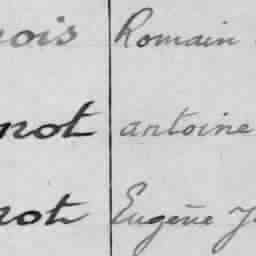 nois Romain
not antoine
not Eugène J